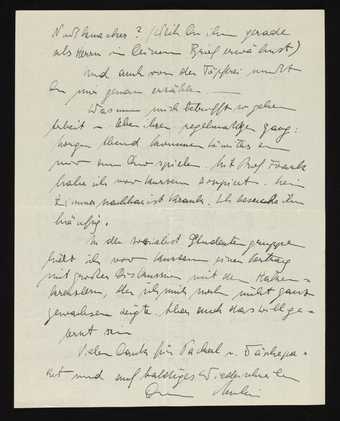 Nußknacker? (weil Du ihn gerade
als Herrn in Deinem Brief erwähnst)
und auch von der Töpferei mußt
Du mir genau erzählen.
Was mich betrifft so gehen
Arbeit u. Leben ihren regelmäßigen Gang.
Morgen Abend kommen
wir zum spielen. Mit Prof. Frank
habe ich vor kurzem. Mein
Zimmernachbar ist krank. Ich besuche ihn
häufig.
In der sozialist. Studentengruppe
hielt ich vor kurzem einen Vortrag
mit großer Diskussion mit den Haken-
kreuzlern, der ich mich noch nicht ganz
gewachsen zeigte. Aber auch das will ge-
lernt sein
Vielen Dank für Packerl u.
und auf baldiges Wiedersehen
Dein